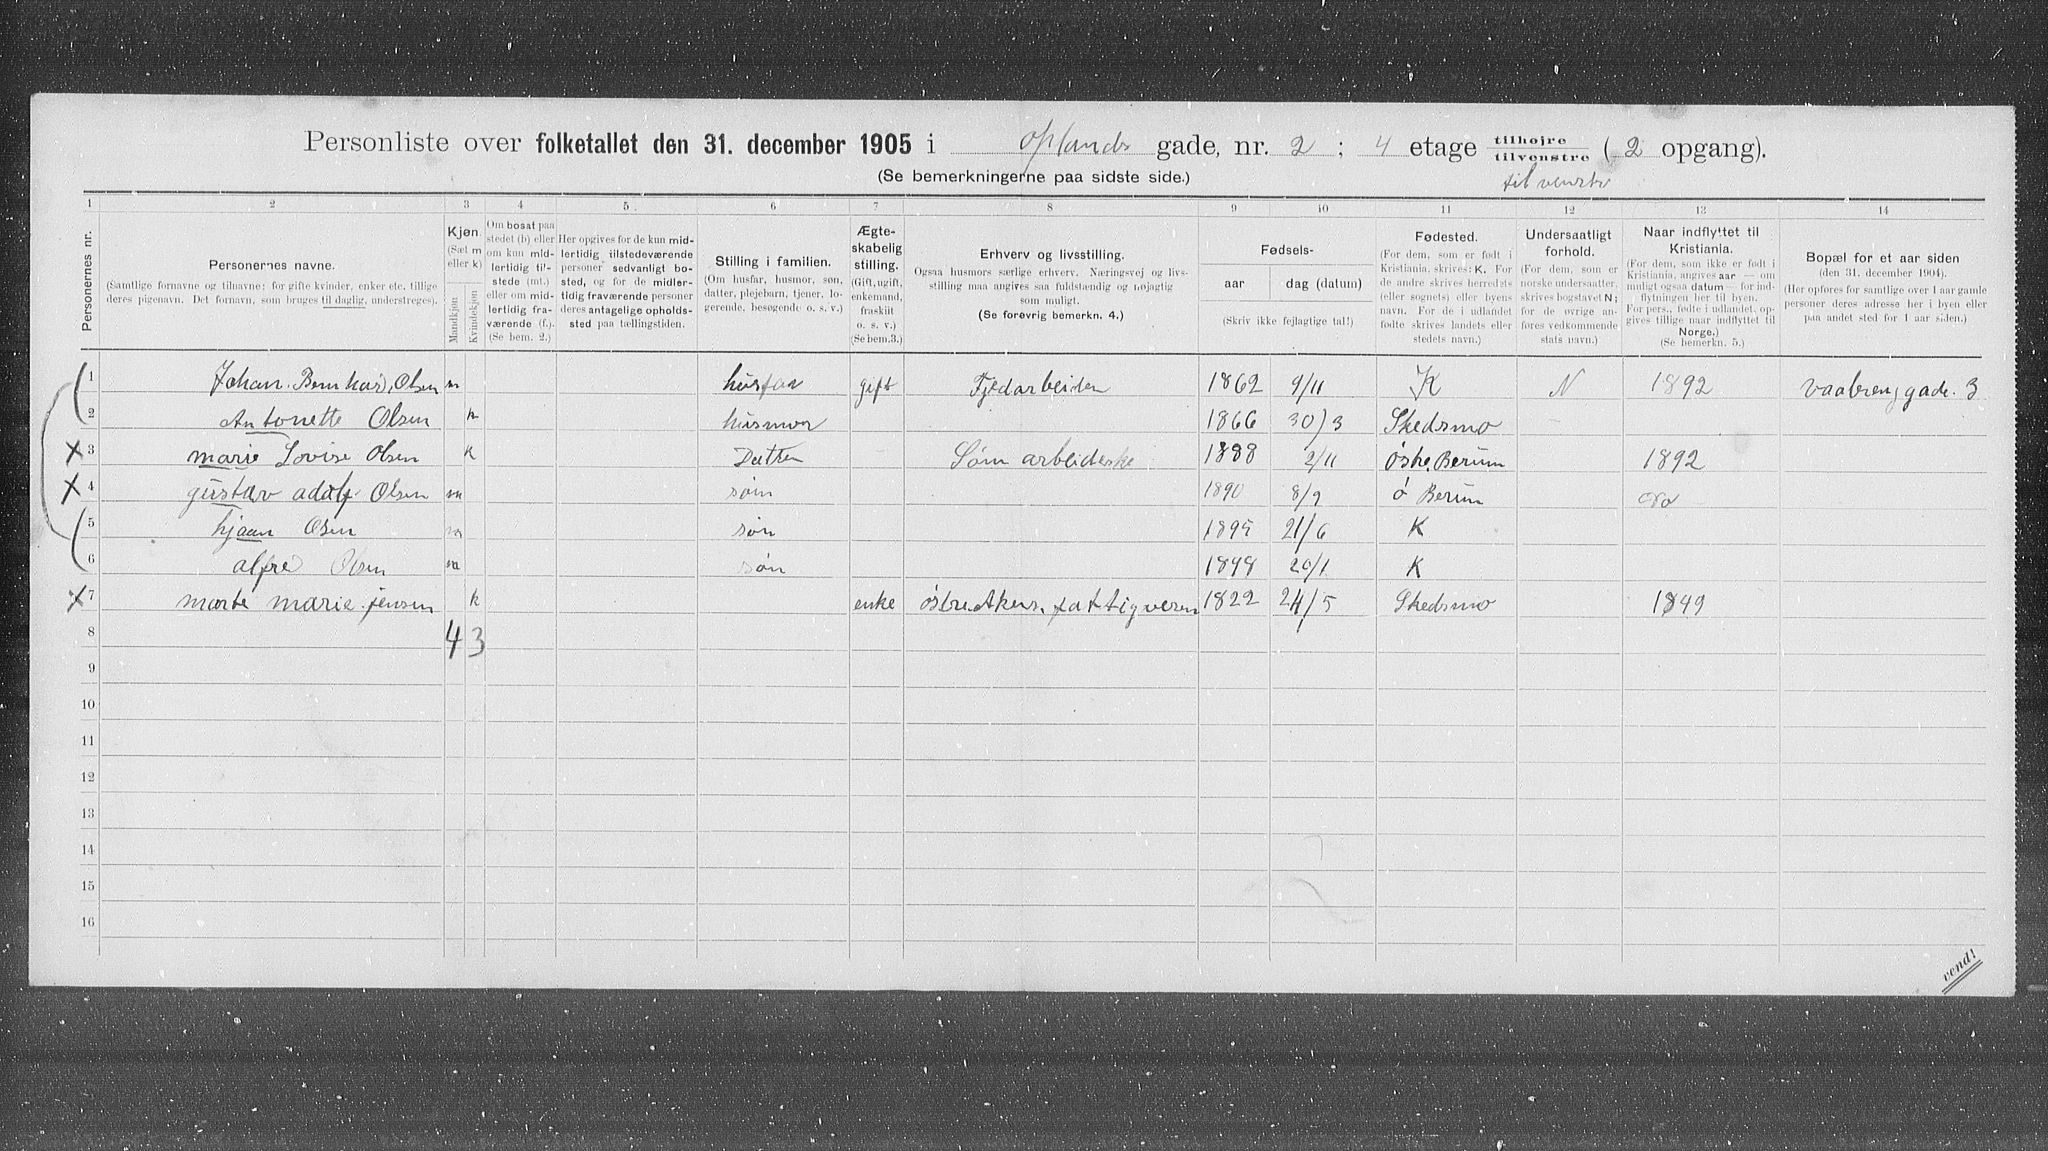 Personliste over folketallet den 31. december 1905 i Oplands gade, nr. 2 ; 4 etage tilhøjre / tilvenstre ( 2 opgang).
(Se bemerkningerne paa sidste side.) til venstre
1 2 3 4 5 6 7 8 9 10 11 12 13 14
Personernes nr.
Personernes navne.
(Samtlige fornavne og tilnavne; for gifte kvinder, enker etc. tillige deres pigenavn. Det fornavn, som bruges til daglig, understreges).
Kjøn.
(Sæt m eller k)
Mandkjøn
Kvindekjøn
Om bosat paa stedet (b) eller om kun midlertidig tilstede (mt.) eller om midlertidig fraværende (f.). (Se bem. 2.)
Her opgives for de kun midlertidig tilstedeværende personer sedvanligt bosted, og for de midlertidig fraværende personer deres antagelige opholdssted paa tællingstiden.
Stilling i familien.
(Om husfar, husmor, søn, datter, plejebarn, tjener, logerende, besøgende o. s. v.)
Ægteskabelig stilling.
(Gift, ugift, enkemand, fraskilt o. s. v.) (Se bem. 3.)
Erhverv og livsstilling.
Ogsaa husmors særlige erhverv. Næringsvej og livsstilling maa angives saa fuldstændig og nøjagtig som muligt.
(Se forøvrig bemerkn. 4.)
Fødsels-
aar dag (datum)
(Skriv ikke fejlagtige tal!)
Fødested.
(For dem, som er født i Kristiania, skrives: K. For de andre skrives herredets (eller sognets) eller byens navn. For de i udlandet fødte skrives landets eller stedets navn.)
Undersaatligt forhold.
(For dem, som er norske undersaatter, skrives bogstavet N; for de øvrige anføres vedkommende stats navn.)
Naar indflyttet til Kristiania.
(For dem, som ikke er født i Kristiania, angives aar — om muligt ogsaa datum — for indflytningen her til byen. For pers., fødte i udlandet, opgives tillige naar indflyttet til Norge.) (Se bemerkn. 5.)
Bopæl for et aar siden
(den 31. december 1904).
(Her opføres for samtlige over 1 aar gamle personer deres adresse her i byen eller paa andet sted for 1 aar siden.)
1 Johan Bernhard Olsen m husfar gift 1862 9/11 K N 1892
2 Antonette Olsen k husmor 1866 30/3 Skedsmo
X 3 marie Lovise Olsen k Datter Søm arbeideske 1888 2/11 østre Berum 1892
X 4 gustav adolf Olsen m søn 1890 8/9 ø Berum do
5 hjaan Olsen m søn 1895 21/6 K
6 alfre Olsen m søn 1898 20/1 K
X 7 marte marie jensen k enke østre Akers fattigvesen 1822 24/5 Skedsmo 1849
8 4 3
9
10
11
12
13
14
15
16
vend!